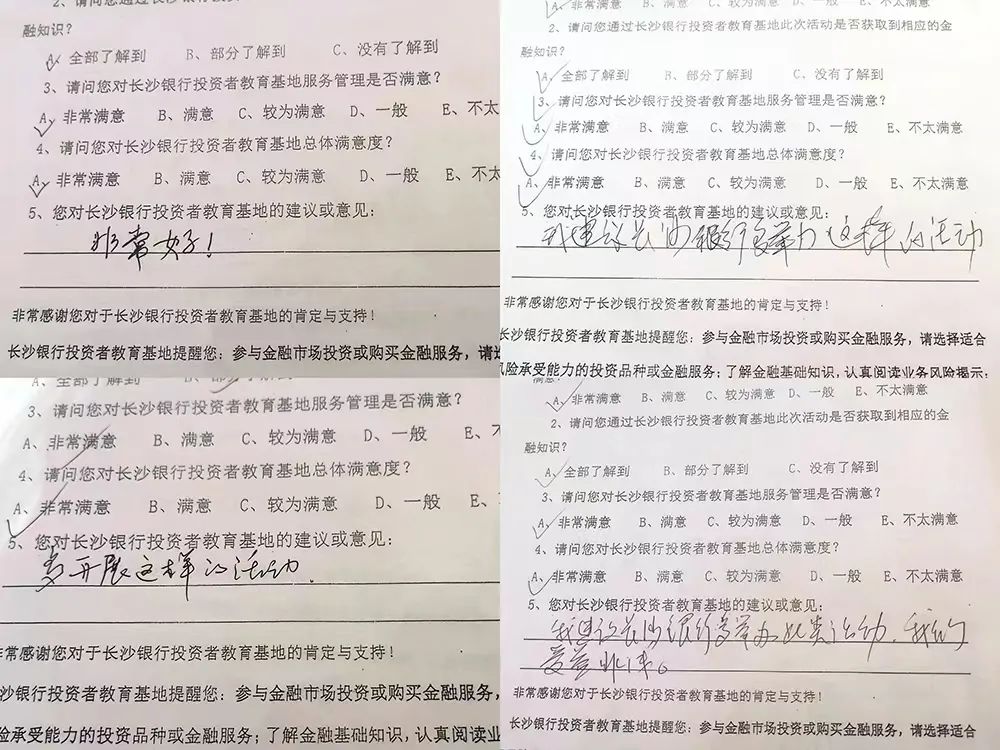 2、请问您通过长沙银行投资
融知识？
A、全部了解到 B、部分了解到 C、没有了解到
3、请问您对长沙银行投资者教育基地服务管理是否满意？
A、非常满意 B、满意 C、较为满意 D、一般 E、不太
4、请问您对长沙银行投资者教育基地总体满意度？
A、非常满意 B、满意 C、较为满意 D、一般 E、不太
5、您对长沙银行投资者教育基地的建议或意见：
非常好！
非常感谢您对于长沙银行投资者教育基地的肯定与支持！
长沙银行投资者教育基地提醒您：参与金融市场投资或购买金融服务，请选
A、非常满意 B、满意 C、较为满意 D、一般 E、不太满意
2、请问您通过长沙银行投资者教育基地此次活动是否获取到相应的金
融知识？
A、全部了解到 B、部分了解到 C、没有了解到
3、请问您对长沙银行投资者教育基地服务管理是否满意？
A、非常满意 B、满意 C、较为满意 D、一般 E、不太满意
4、请问您对长沙银行投资者教育基地总体满意度？
A、非常满意 B、满意 C、较为满意 D、一般 E、不太满意
5、您对长沙银行投资者教育基地的建议或意见：
我建议长沙银行多举办这样的活动
非常感谢您对于长沙银行投资者教育基地的肯定与支持！
长沙银行投资者教育基地提醒您：参与金融市场投资或购买金融服务，请选择适合
风险承受能力的投资品种或金融服务；了解金融基础知识，认真阅读业务风险揭示；
A、全部了解到 B、部分了解到 C、没有了解到
3、请问您对长沙银行投资者教育基地服务管理是否满意？
A、非常满意 B、满意 C、较为满意 D、一般 E、不
4、请问您对长沙银行投资者教育基地总体满意度？
A、非常满意 B、满意 C、较为满意 D、一般 E、
5、您对长沙银行投资者教育基地的建议或意见：
多开展这样的活动.
非常感谢您对于长沙银行投资者教育基地的肯定与支持！
沙银行投资者教育基地提醒您：参与金融市场投资或购买金融服务，
险承受能力的投资品种或金融服务；了解金融基础知识，认真阅读业
满意？
A、非常满意 B、满意 C、较为满意 D、一般 E、不太满意
2、请问您通过长沙银行投资者教育基地此次活动是否获取到相应的金
融知识？
A、全部了解到 B、部分了解到 C、没有了解到
3、请问您对长沙银行投资者教育基地服务管理是否满意？
A、非常满意 B、满意 C、较为满意 D、一般 E、不太满意
4、请问您对长沙银行投资者教育基地总体满意度？
A、非常满意 B、满意 C、较为满意 D、一般 E、不太满意
5、您对长沙银行投资者教育基地的建议或意见：
我建议长沙银行多举办此类活动，我们
受益非浅。
非常感谢您对于长沙银行投资者教育基地的肯定与支持！
长沙银行投资者教育基地提醒您：参与金融市场投资或购买金融服务，请选择适合